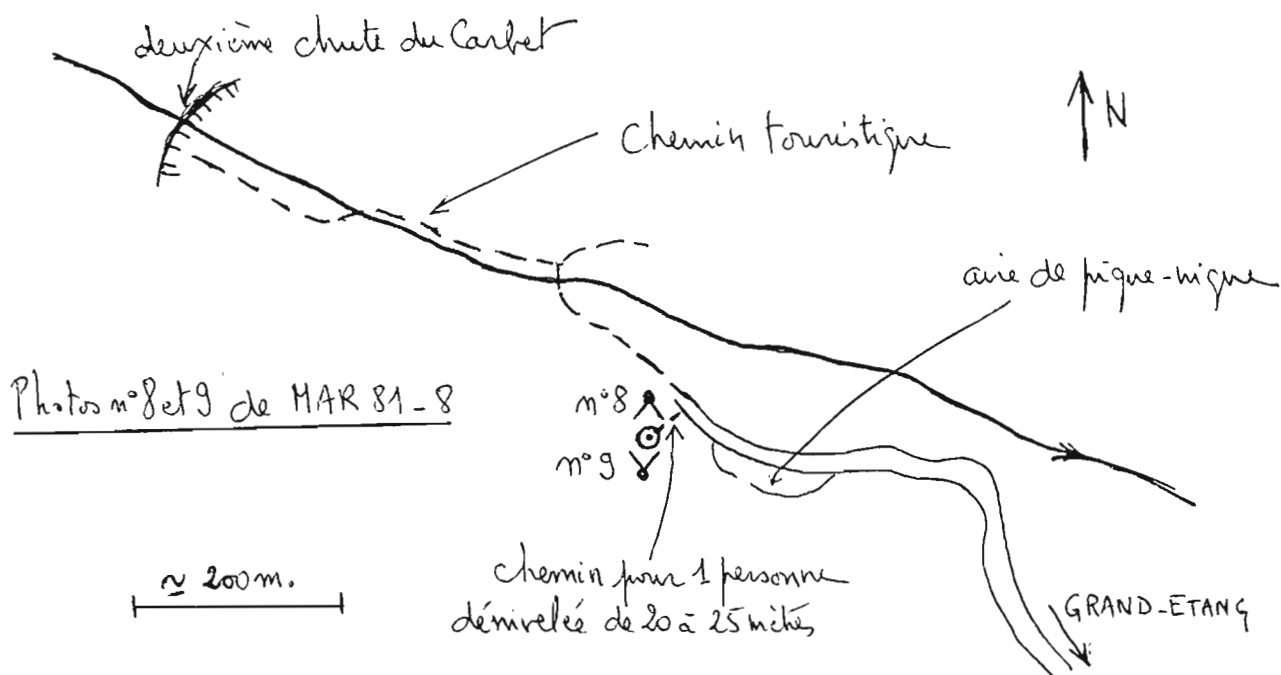 deuxième chute du Carbet
N
Chemin touristique
aire de pique-nique
Photos n°8 et 9 de MAR 81-8
n°8
n°9
≃ 200m.
chemin pour 1 personne
dénivelée de 20 à 25 mètres
GRAND-ETANG